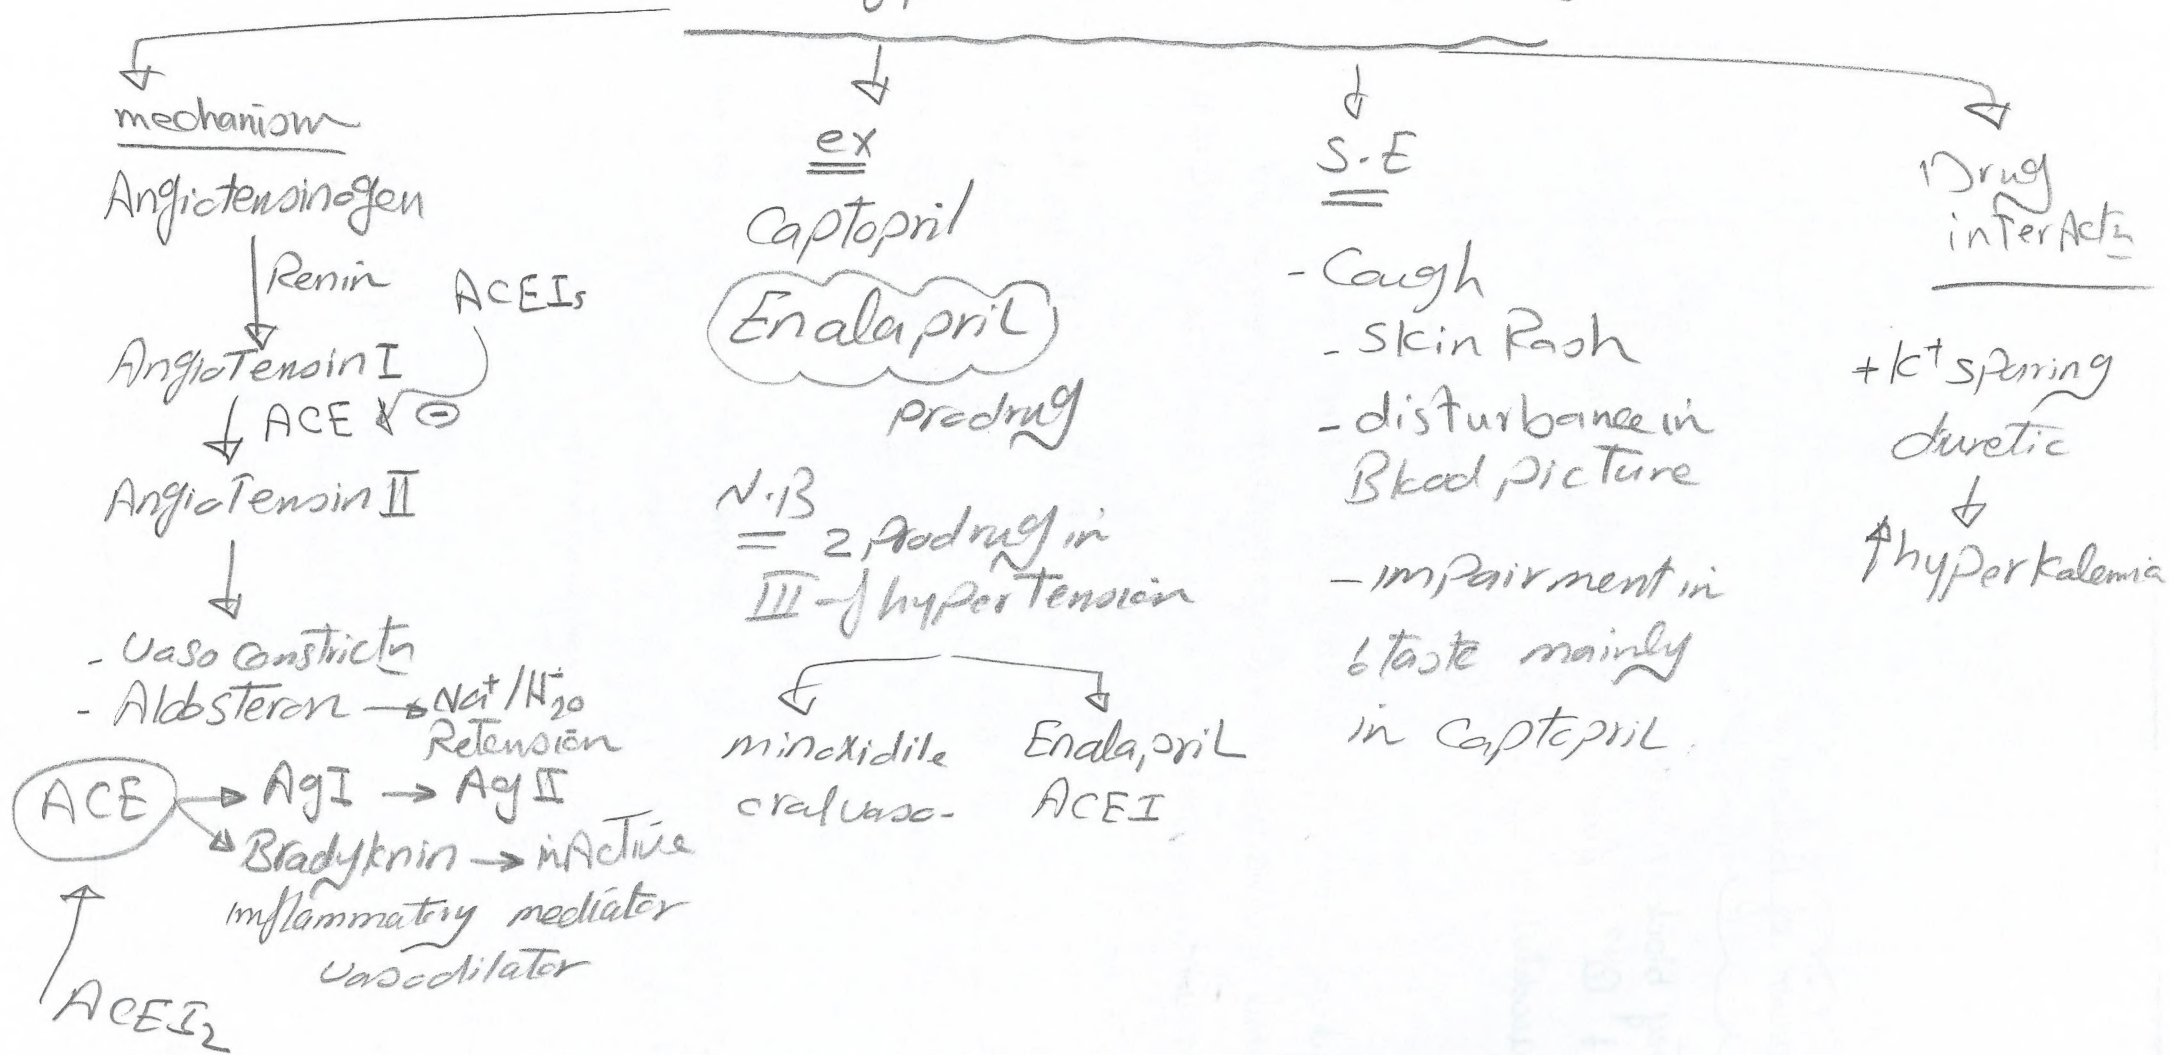 mechanism
Angiotensinogen
Renin
ACEIs
Angiotensin I
ACE ⊖
Angiotensin II
- Vaso constrictn
- Aldosteron → Na+/H2O
Retension
ACE → AgI → Ag II
Bradyknin → inActive
inflammatory mediator
vasodilator
ACEIs
ex
Captopril
Enalapril
prodrug
N.B
= 2 prodrug in
III of hypertension
minoxidile
oral vaso-
Enalapril
ACEI
S.E
- Cough
- Skin Rash
- disturbance in
Blood picture
- impairment in
taste mainly
in captopril.
Drug
interActn
+ K+ sparing
diuretic
↓
↑hyperkalemia